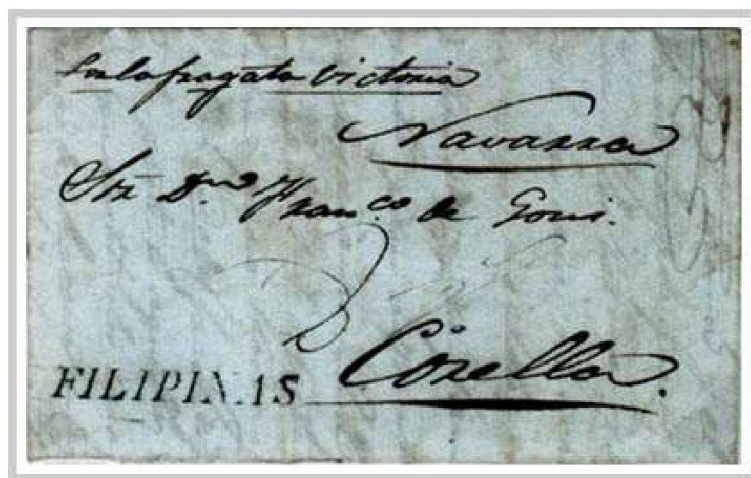 Por la fragata Victoria
Navarra
Sor Dn Franco de Goñi.
FILIPINAS Corella.